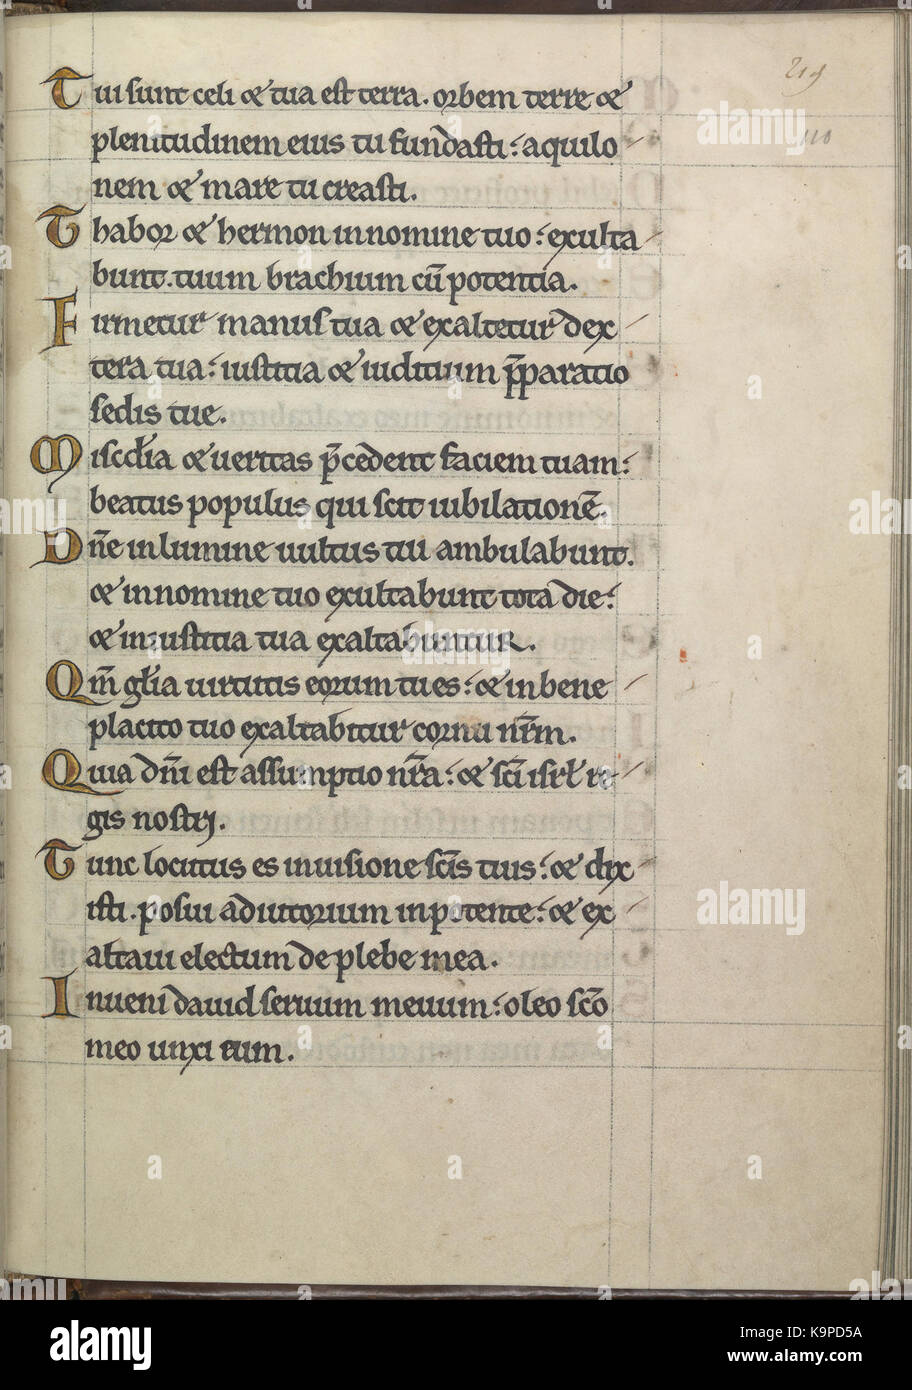 219
110
Tui sunt celi & tua est terra. orbem terre &
plenitudinem eius tu fundasti: aquilo
nem & mare tu creasti.
Thabor & hermon innomine tuo: exulta
bunt. tuum brachium cū potentia.
Firmetur manus tua & exaltetur dex
tera tua: iustitia & iuditium p̄paratio
sedis tue.
Miscdia & ueritas p̄cedent faciem tuam:
beatus populus qui scit iubilationē.
Dn̄e inlumine uultus tui ambulabunt.
& innomine tuo exultabunt tota die:
& iniustitia tua exaltabuntur.
Qm̄ glia uirtutis eorum tu es: & inbene
placito tuo exaltabitur cornu nr̄m.
Quia dn̄i est assumptio nr̄a: & sc̄i isrl re
gis nostrj.
Tunc locutus es inuisione sc̄is tuis: & dix
isti. posui adiutorium inpotente: & ex
altaui electum de plebe mea.
Inueni dauid seruum meuum: oleo sc̄o
meo unxi eum.
alamy stock photo
alamy
a
K9PD5A
www.alamy.com